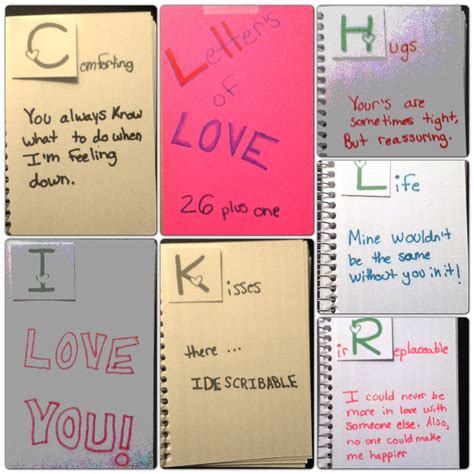 Comforting
You always know
what to do when
I'm feeling
down.
Letter's
of
LOVE
26 plus one
Hugs
Your's are
sometimes tight,
But reassuring.
Life
Mine wouldn't
be the same
without you in it!
I
LOVE
YOU!
Kisses
there ...
IDESCRIBABLE
irReplaceable
I could never be
more in love with
someone else. Also,
no one could make
me happier